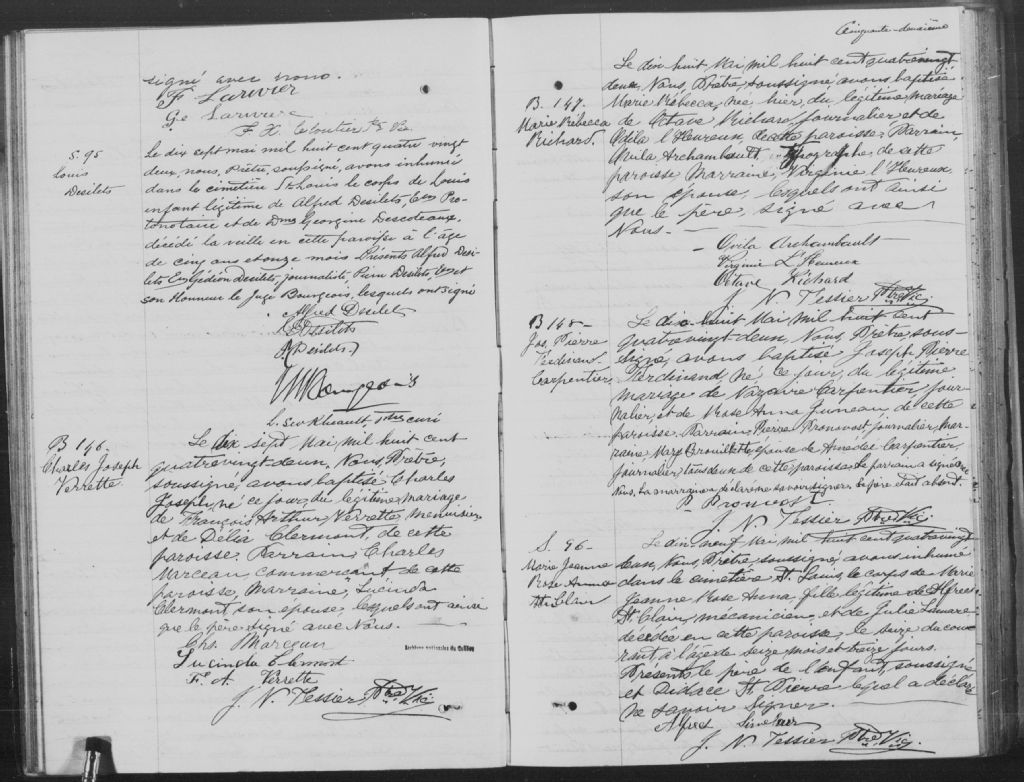 signé avec nous.
F. Larivier
F. X. Cloutier
S. 95
Louis
Desilets
Le dix sept mai mil huit cent quatre vingt
deux, nous, Prêtre, soussigné, avons inhumé
dans le cimetière St Louis le corps de Louis
enfant légitime de Alfred Desilets, Ecr Pro-
tonotaire et de Dme Georgine Descoteaux,
décédé la veille en cette paroisse à l'âge
de cinq ans et onze mois. Présents Alfred Desi-
lets Ecr Gédéon Desilets, journaliste, Pierre Desilets, et
son Honneur le Juge Bourgeois, lesquels ont signé
Alfred Desilets
Desilets
P. Desilets
Bourgeois
Ptre curé
B 146.
Charles Joseph
Verrette.
Le dix sept Mai, mil huit cent
quatre vingt deux, Nous, Prêtre,
soussigné, avons baptisé Charles
Joseph, né ce jour, du légitime mariage
de François Arthur Verrette, menuisier
et de Délia Clermont, de cette
paroisse. Parrain, Charles
Marceau, commercant de cette
paroisse, Marraine, Lucinda
Clermont son epouse, lesquels ont ainsi
que le père signé avec Nous.
Chs. Marceau
Lucinda Clermont
F. A. Verrette
J. N. Tessier Ptre Vic.
Archives nationales du Québec
Cinquante-deuxième
B. 147.
Marie Rébecca
Richard.
Le dix huit Mai mil huit cent quatre vingt
deux, Nous, Prêtre, soussigné, avons baptisé
Marie Rébecca, née hier, du légitime mariage
de Octave Richard, journalier et de
Odila l'Heureux de cette paroisse. Parrain,
Ovila Archambault, Typographe, de cette
paroisse Marraine, Virginie l'Heureux
son épouse, lesquels ont ainsi
que le père, signé avec
Nous.
Ovila Archambault
Virginie L'Heureux
Octave Richard
J. N. Tessier Ptre Vic.
B 148
Jos. Pierre
Ferdinand
Carpentier
Le dix huit Mai, mil huit cent
quatre vingt deux, Nous, Prêtre, sous-
signé, avons baptisé Joseph Pierre
Ferdinand, né ce jour, du légitime
mariage de Nazaire Carpentier, jour-
nalier, et de Rose Anna Juneau, de cette
paroisse. Parrain, Pierre Pronovost, journalier, mar-
raine, Mary Brouillette, épouse de Amedée Carpentier,
journalier, tous deux de cette paroisse. Le parrain a signé avec
Nous. La marraine a déclaré ne savoir signer. Le père était absent.
P Pronovost
J. N. Tessier Ptre Vic
S. 96
Marie Jeanne
Rose Anna
St Clair
Le dix neuf Mai mil huit cent quatre vingt
deux, Nous, Prêtre, soussigné, avons inhumé
dans le cimetière St. Louis, le corps de Marie
Jeanne Rose Anna, fille légitime de Alfred
St. Clair, mécanicien, et de Julie Lamare
décédée en cette paroisse, le seize du cou-
rant à l'âge de seize mois et treize jours.
Présents, le père de l'enfant, soussigné
et St. Pierre lequel a déclaré
ne savoir signer.
Alfred
J. N. Tessier Ptre Vic.